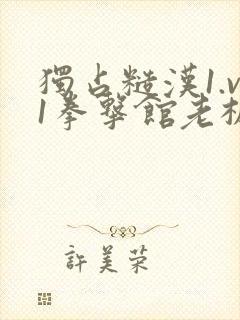 獨占糙漢1.v
1拳擊館老板
許美荣